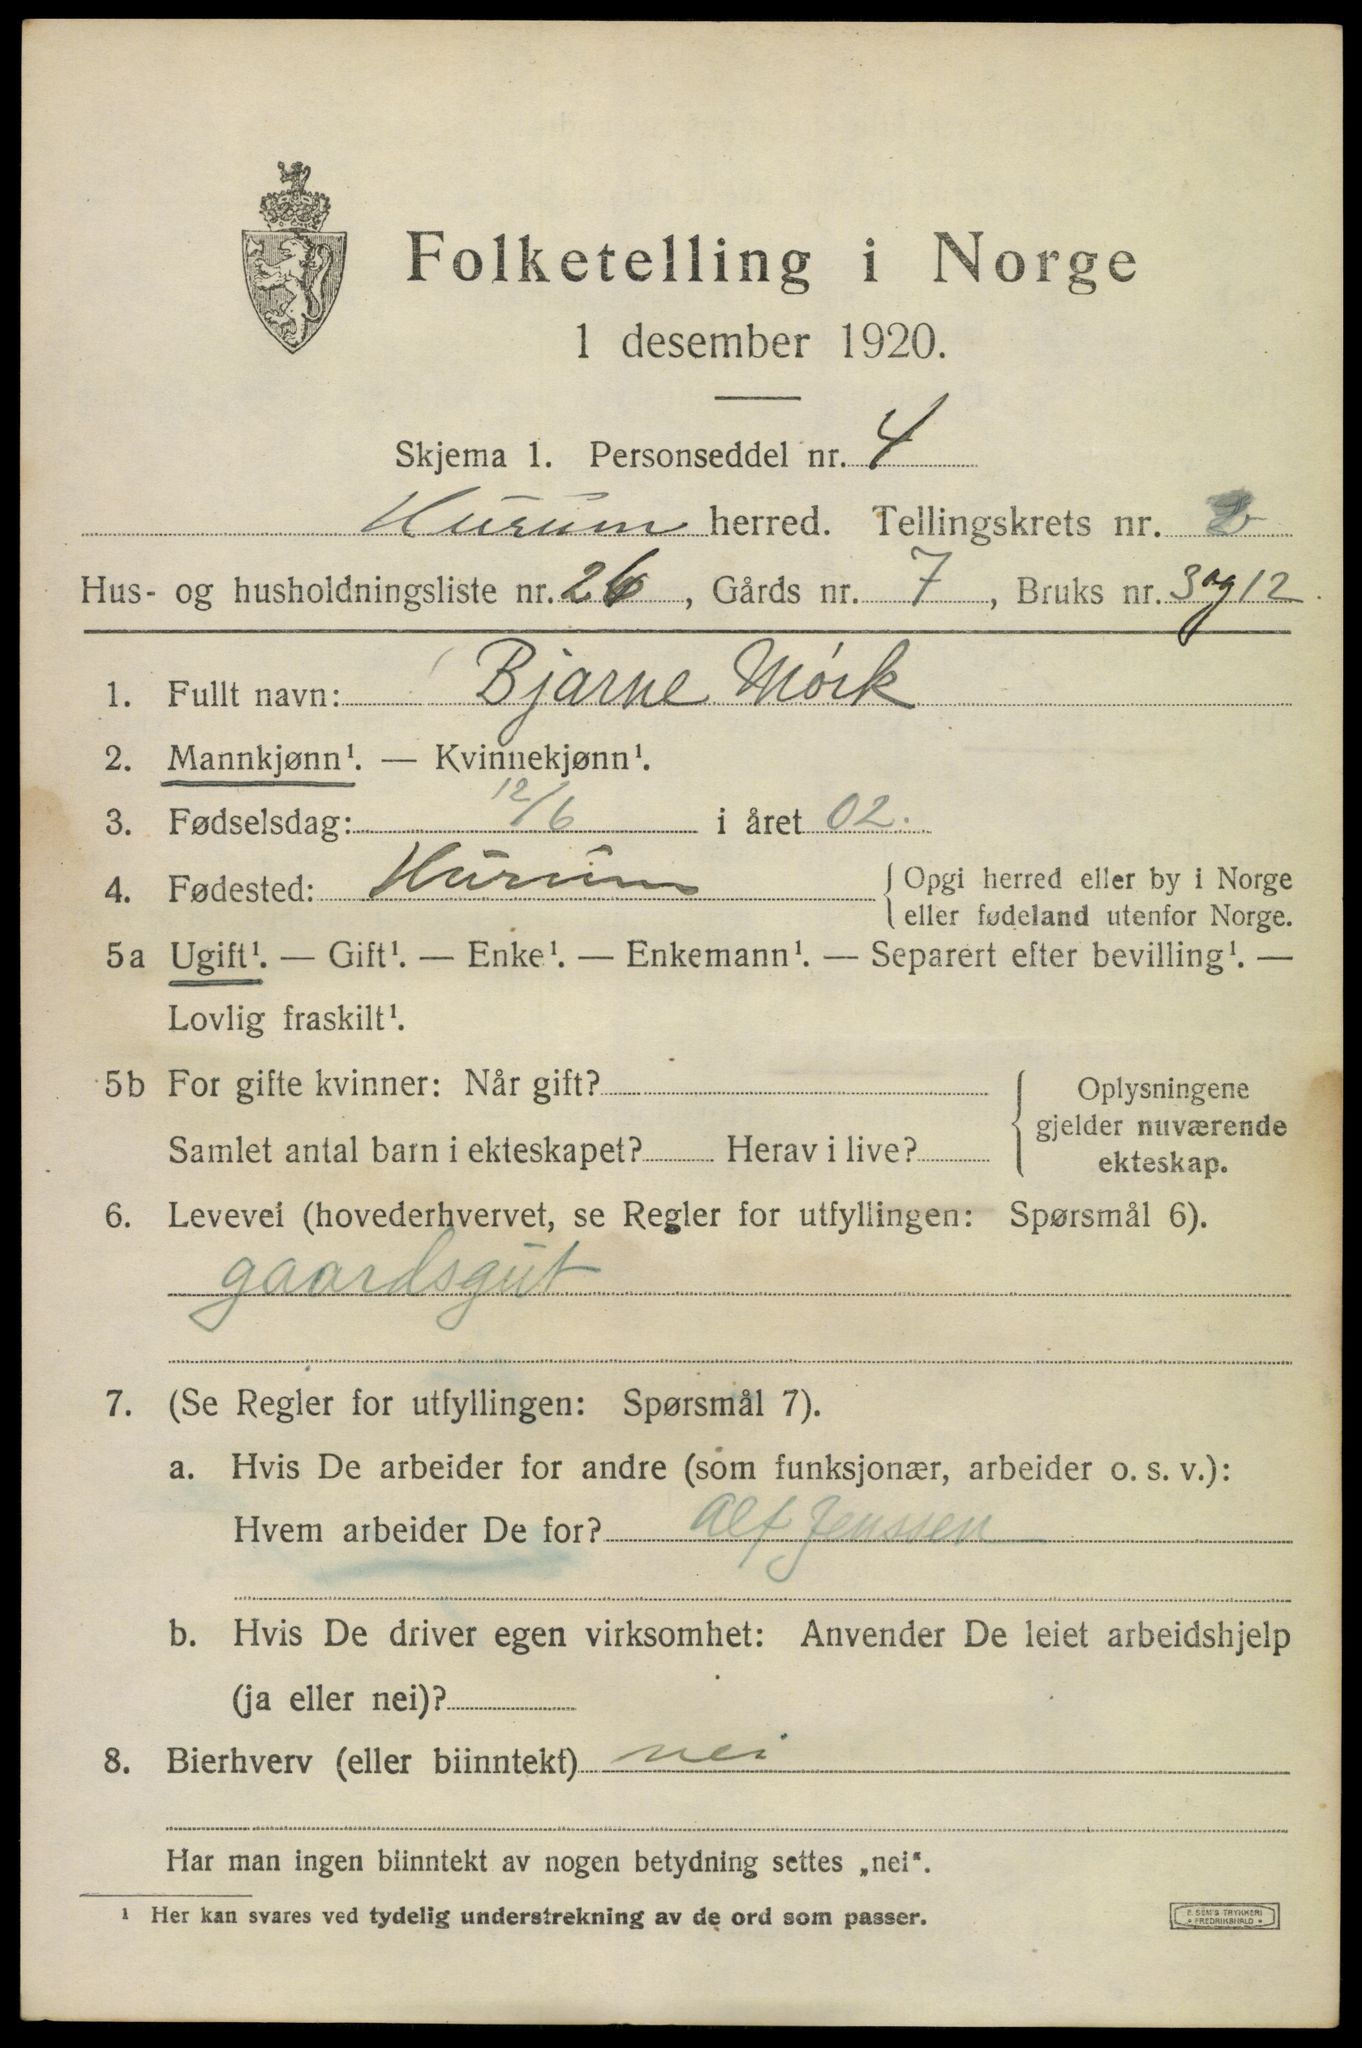 Folketelling i Norge
1 desember 1920.
Skjema 1. Personseddel nr. 4
Hurum herred. Tellingskrets nr.
Hus- og husholdningsliste nr. 26, Gårds nr. 7, Bruks nr. 3 og 12.
1. Fullt navn: Bjarne Mørk
2. Mannkjønn¹. — Kvinnekjønn¹.
3. Fødselsdag: 12/6 i året 02.
4. Fødested: Hurum { Opgi herred eller by i Norge
eller fødeland utenfor Norge.
5a Ugift¹. — Gift¹. — Enke¹. — Enkemann¹. — Separert efter bevilling¹. —
Lovlig fraskilt¹.
5b For gifte kvinner: Når gift? { Oplysningene
gjelder nuværende
Samlet antal barn i ekteskapet? Herav i live? ekteskap.
6. Levevei (hovederhvervet, se Regler for utfyllingen: Spørsmål 6).
gaardsgut
7. (Se Regler for utfyllingen: Spørsmål 7).
a. Hvis De arbeider for andre (som funksjonær, arbeider o. s. v.):
Hvem arbeider De for? Alf Jenssen
b. Hvis De driver egen virksomhet: Anvender De leiet arbeidshjelp
(ja eller nei)?
8. Bierhverv (eller biinntekt) nei
Har man ingen biinntekt av nogen betydning settes „nei“.
¹ Her kan svares ved tydelig understrekning av de ord som passer.
E. SEM'S TRYKKERI
• FREDRIKSHALD •